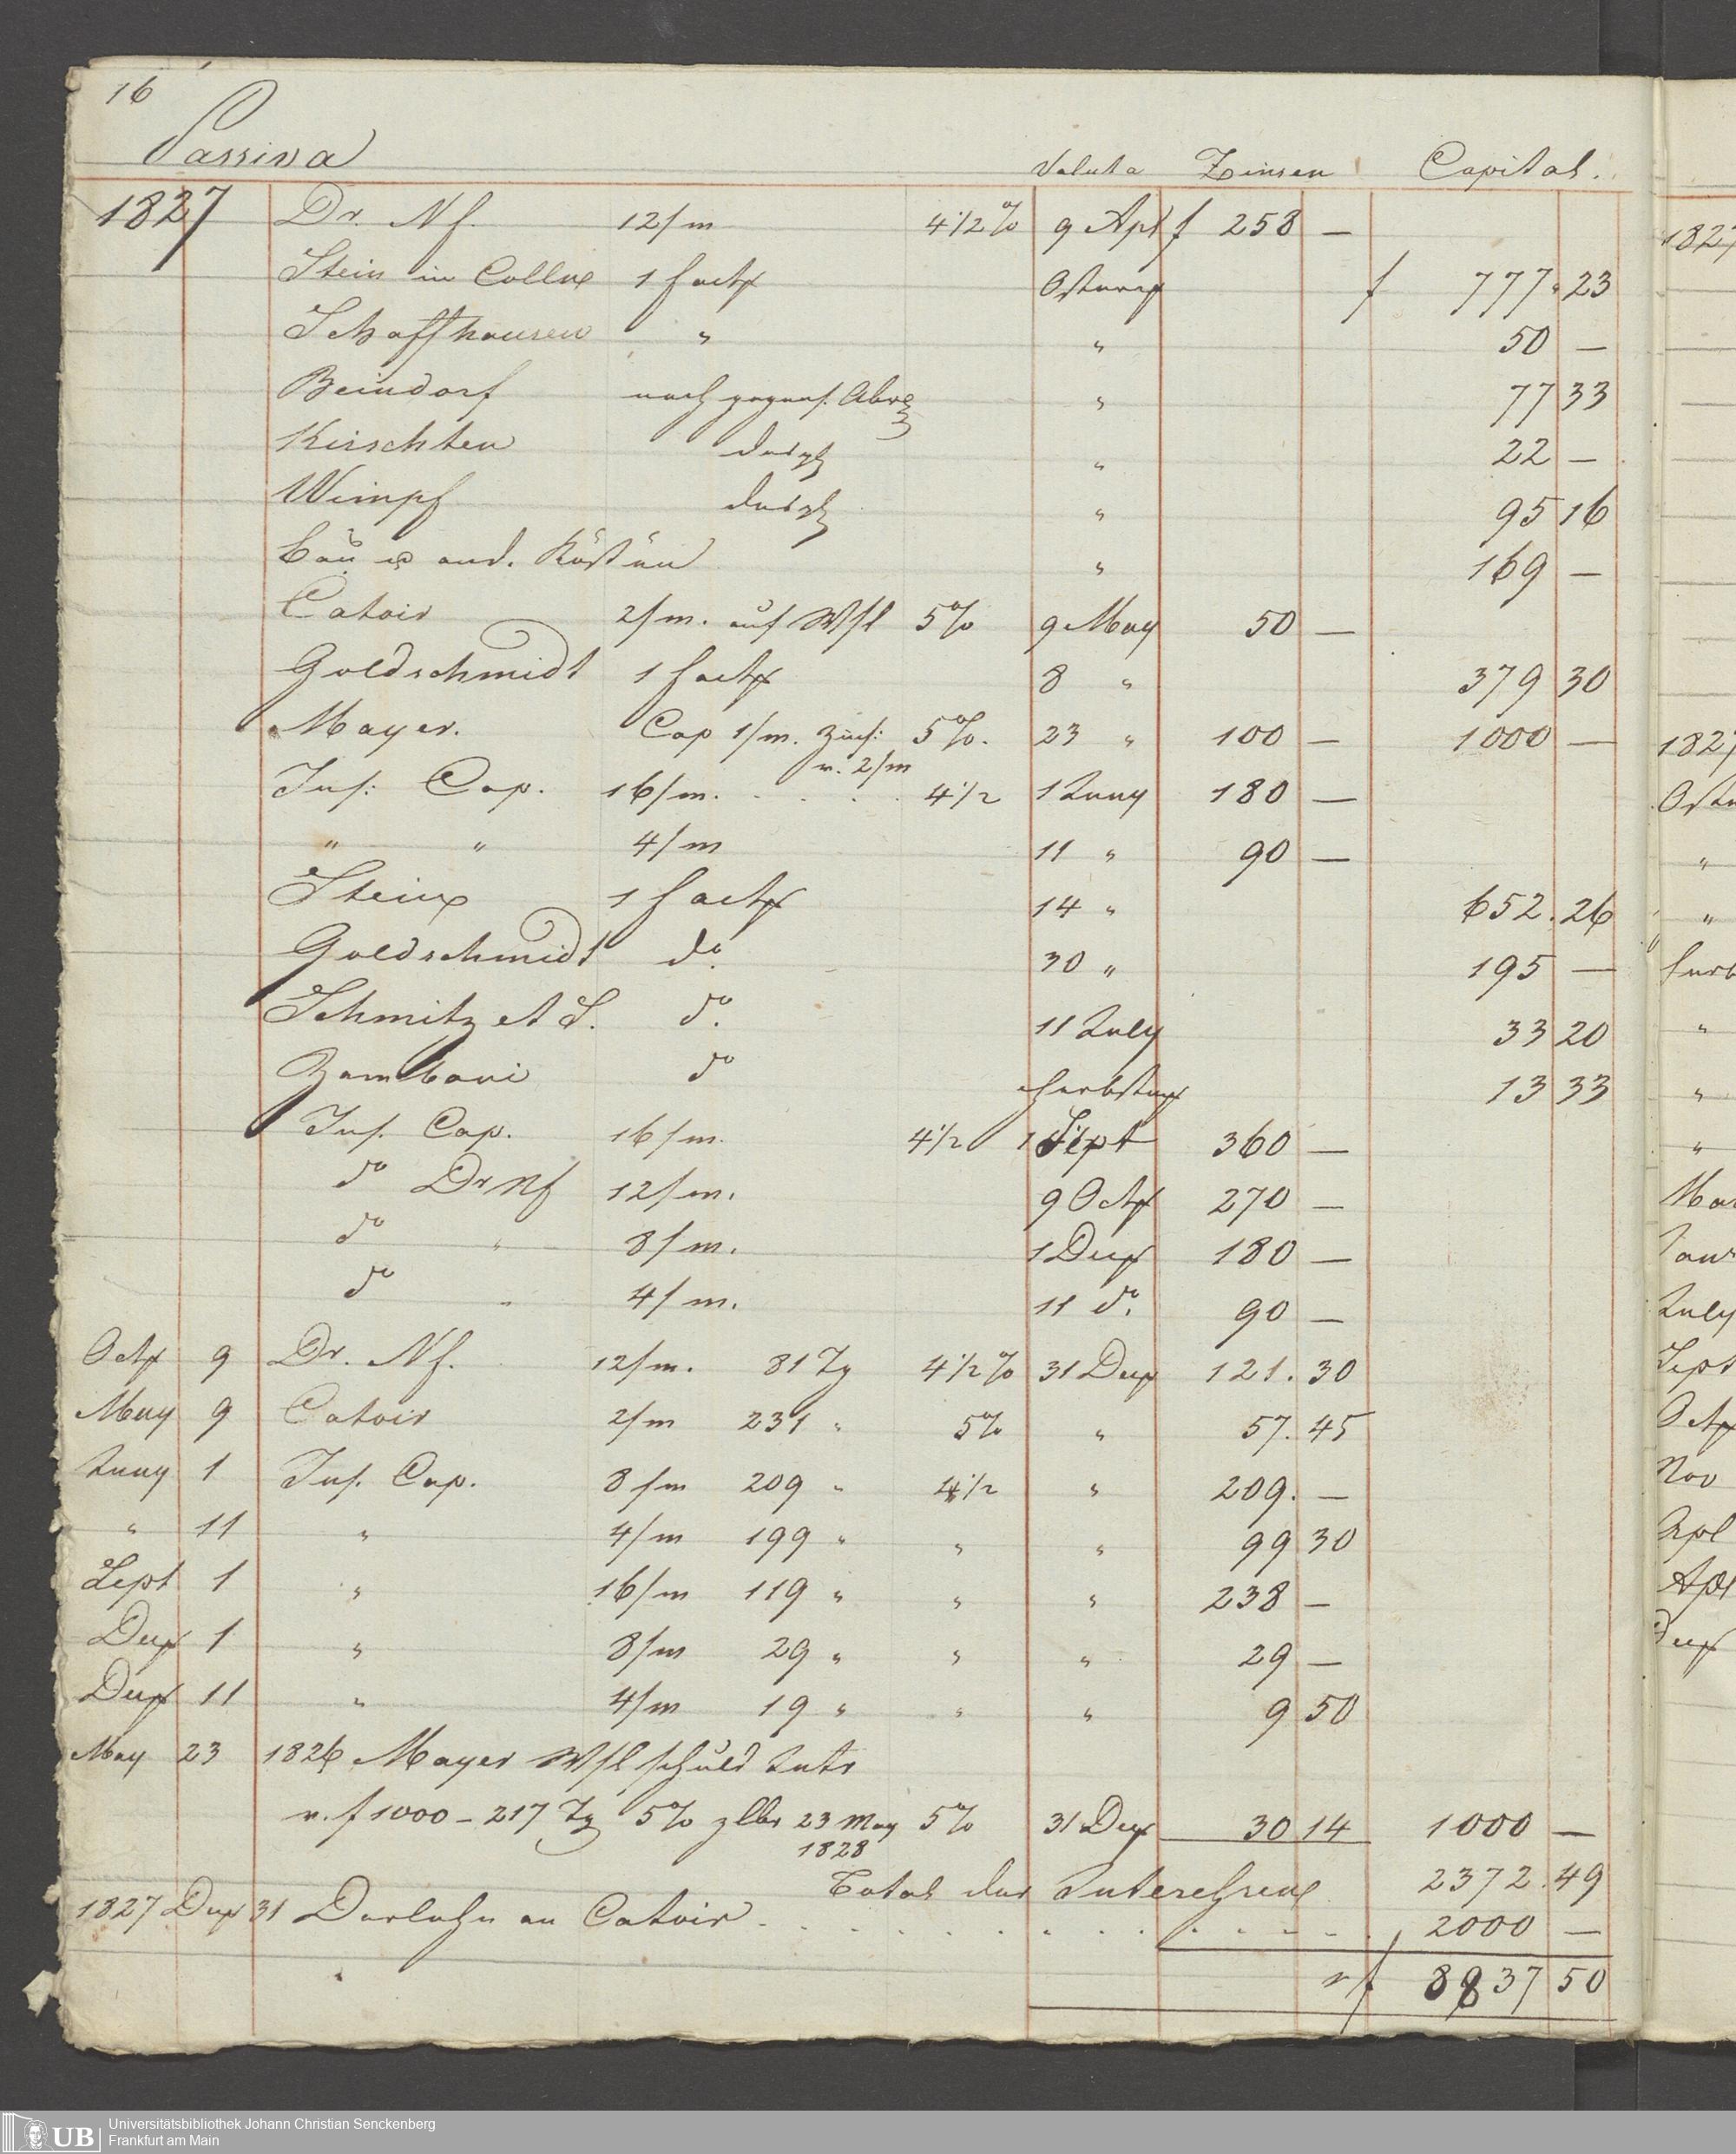 16
Passiva
Valuta Zinsen Capital.
1827 Dr. Nf. 12/m 4 1/2 % 9 Apl f 258 —
Stein in Cölln 1 factx Ostermx f 777 . 23
Schaffhausen " " 50 —
Beindorf nach gegens. Abrg " 77 33
Kirschten desgl " 22 —
Wimpf desgl " 95 16
Bau u and. Kosten " 169 —
Catoir 2/m. auf Wsl 5% 9 May 50 —
Goldschmidt 1 factx 8 " 379 30
Mayer. Cap 1/m. Zins: 5%. 23 " 100 — 1000 —
v. 2/m
Ins: Cap. 16/m. . . . . 4 1/2 1 Juny 180 —
" " 4/m 11 " 90 —
Stein 1 factx 14 " 652 . 26
Goldschmidt do. 30 " 195 —
Schmitz et S. do. 11 July 33 20
Zamboni do Herbstmx 13 33
Ins. Cap. 16/m. 4 1/2 1 Sept 360 —
do Dr Nf 12/m. 9 Octx 270 —
do " 8/m. 1 Decx 180 —
do " 4/m. 11 do. 90 —
Octx 9 Dr. Nf. 12/m. 81 Tg 4 1/2 % 31 Decx 121 . 30
May 9 Catoir 2/m 231 " 5% " 57 . 45
Juny 1 Ins. Cap. 8/m 209 " 4 1/2 " 209. —
" 11 " 4/m 199 " " " 99 30
Sept 1 " 16/m 119 " " " 238 —
Decx 1 " 8/m 29 " " " 29 —
Decx 11 " 4/m 19 " " " 9 50
May 23 1826 Mayer Wsl schuld Intr
v. f 1000 – 217 Tg 5% zlbr 23 May 5% 31 Decx 30 14 1000 —
1828
Total der Interessen 2372 . 49
1827 Decx 31 Darlehn an Catoir . . . . . . . . . . . 2000 —
f 8837 50
1827
1827
"
"
"
"
"
July
Sept
Octx
Nov
Apl
Apl
Decx
UB Universitätsbibliothek Johann Christian Senckenberg
Frankfurt am Main